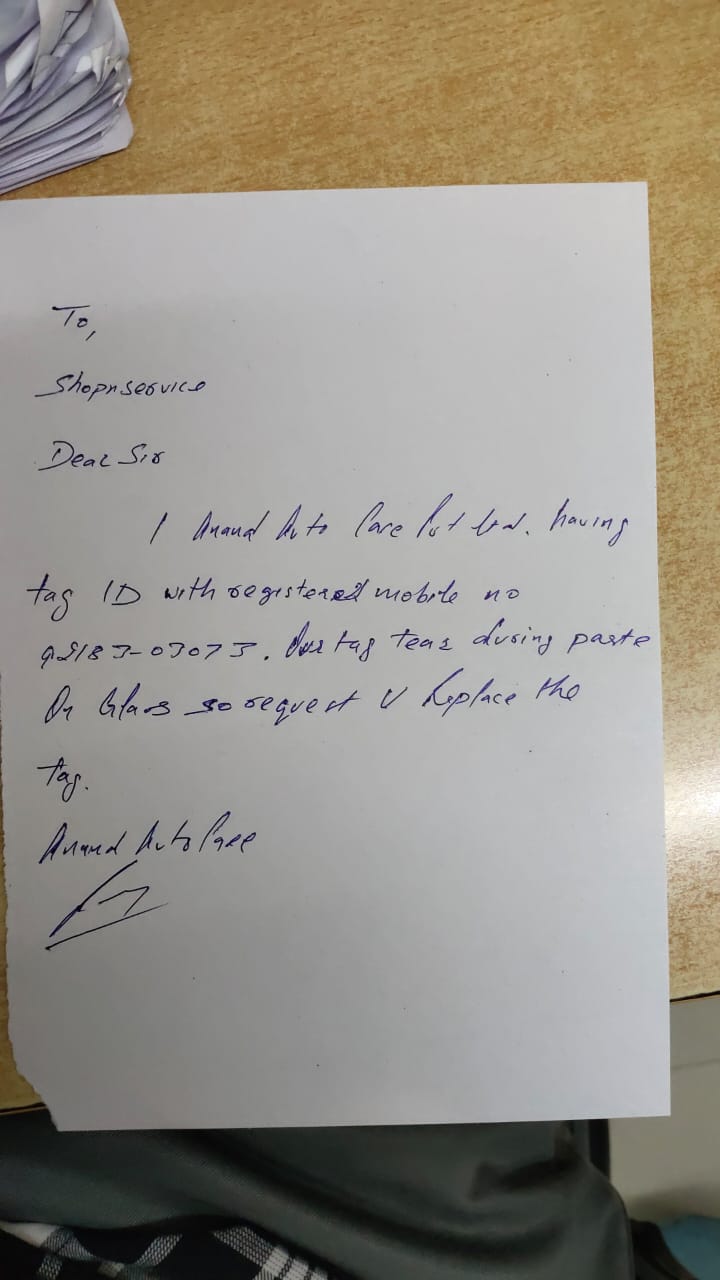 To,
Shopnservice
Dear Sir
I Anand Auto Care Pvt Ltd. having
tag ID with registered mobile no
Our tag tear during paste
On Glass so request U Replace the
tag.
Anand Auto Care